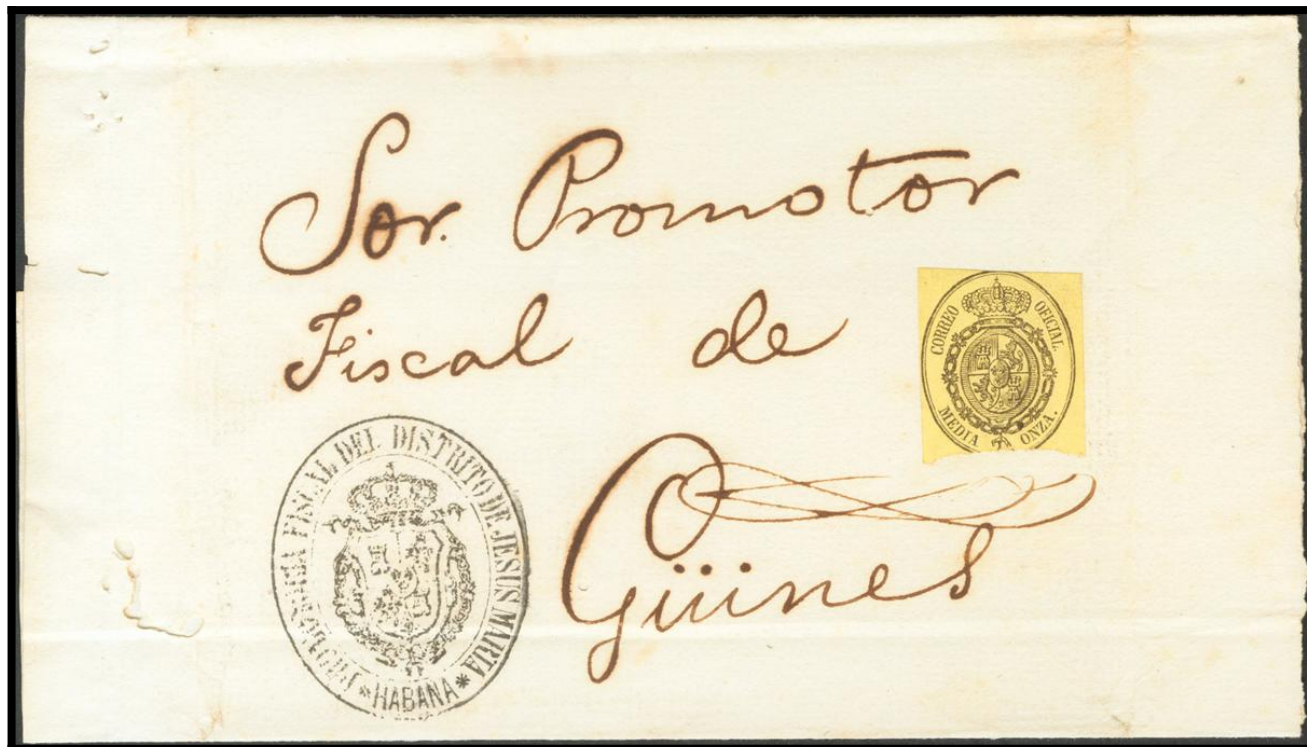 Sor. Promotor
Fiscal de
Güines
CORREO OFICIAL.
MEDIA ONZA.
PROMOTORIA FISCAL DEL DISTRITO DE JESUS MARIA
*HABANA*